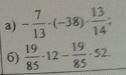 а) -7/13 · (-38) · 13/14;
б) 19/85 · 12 - 19/85 · 52.